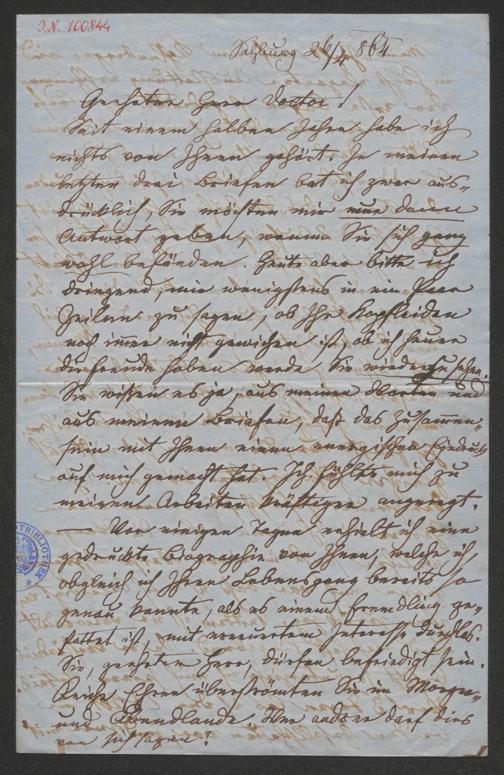 I.N. 100844
Salzburg 26/4 864.
Geehrter Herr Doctor!
Seit einem halben Jahre habe ich
nichts von Ihnen gehört. In meinen
letzten drei Briefen bat ich zwar aus-
drücklich, Sie möchten mir nur dann
Antwort geben, wenn Sie sich ganz
wohl befänden. Heute aber bitte ich
dringend, mir wenigstens in ein Paar
Zeilen zu sagen, ob Ihr Kopfleiden
noch immer nicht gewichen ist, ob ich heuer
die Freude haben werde Sie wiederzusehen.
Sie wißen es ja, aus meinen Worten und
aus meinen Briefen, daß das Zusammen-
sein mit Ihnen einen energischen Eindruck
auf mich gemacht hat. Ich fühlte mich zu
meinen Arbeiten kräftiger angeregt.
— Vor einigen Tagen erhielt ich eine
gedruckte Biographie von Ihnen, welche ich
obgleich ich Ihren Lebensgang bereits so
genau kannte, als es einem Fremdling ge-
stattet ist, mit erneuertem Interesse durchlas.
Sie, geehrter Herr, dürfen befriedigt sein.
Reiche Ehren überströmten Sie im Morgen-
und Abendlande. Wer anders darf dies
von sich sagen!